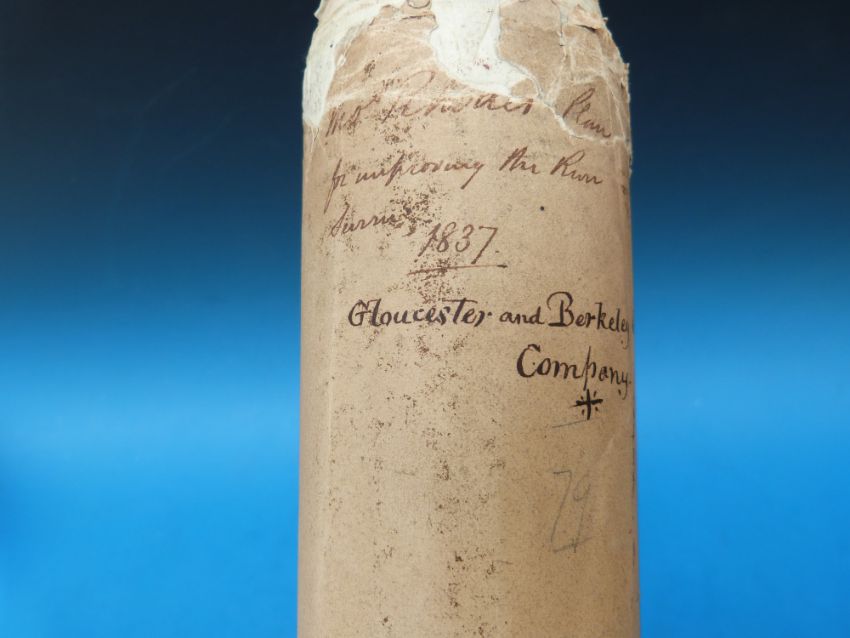 Mr Rhodes Plan
for improving the River
Severn
1837.
Gloucester and Berkeley
Company.
79